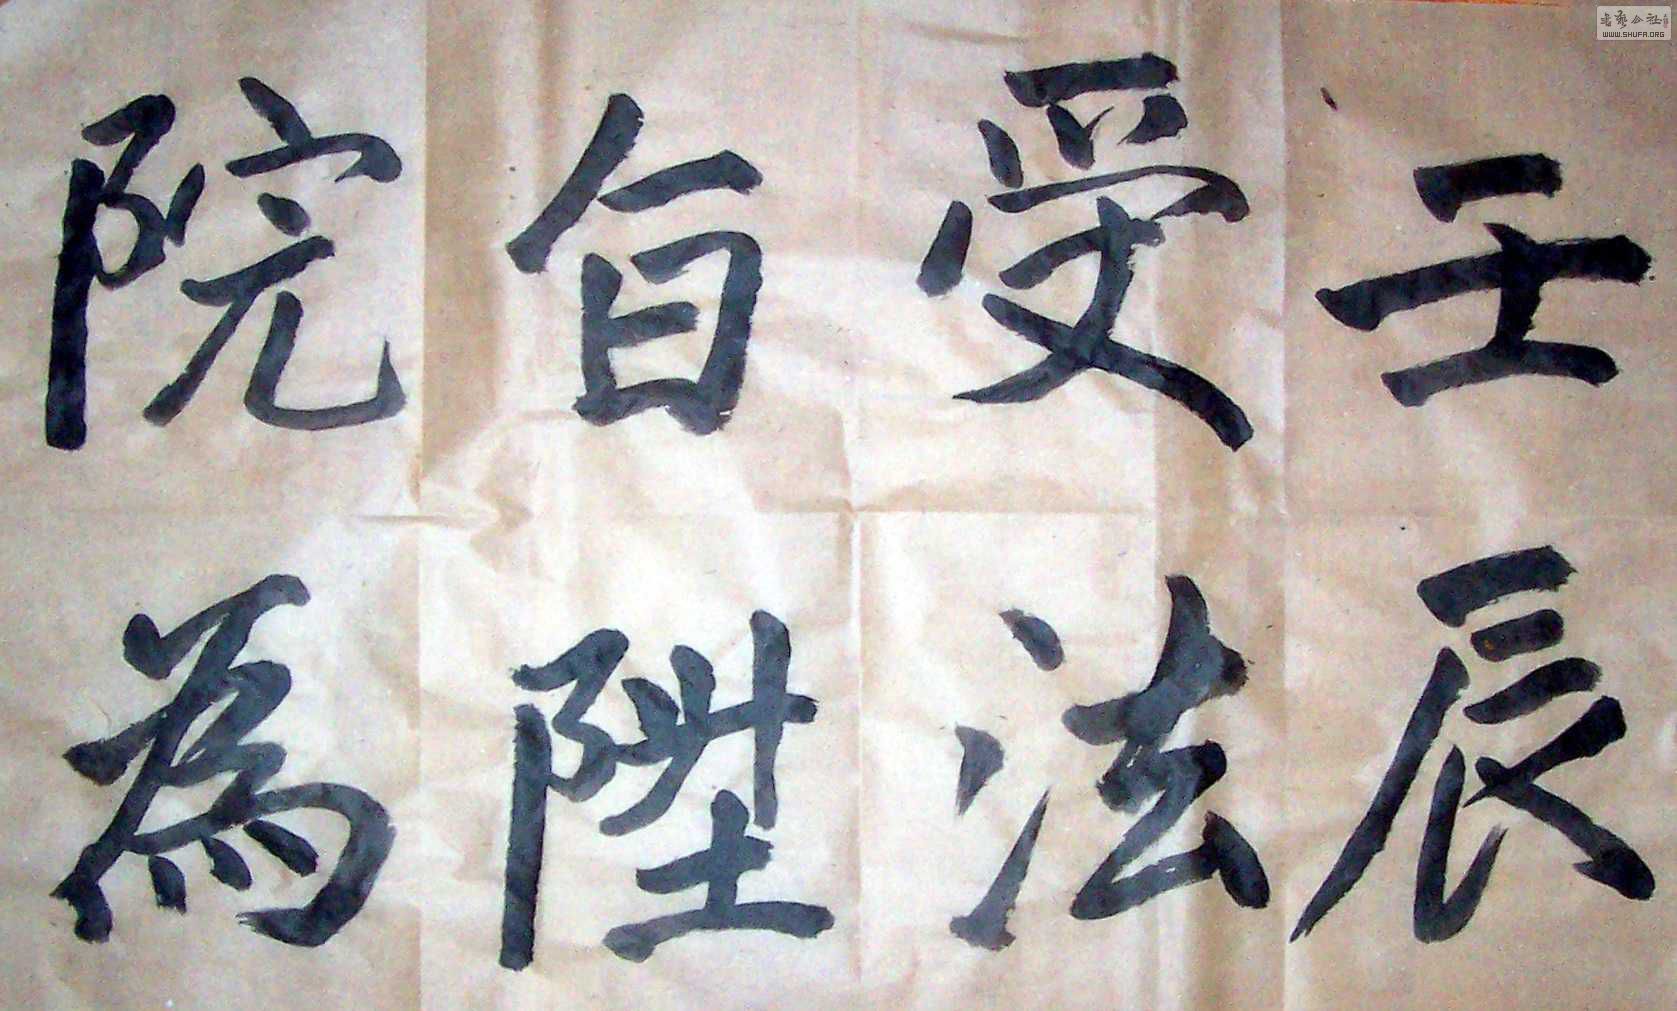 壬辰
受法
自陞
院為
書藝公社
WWW.SHUFA.ORG